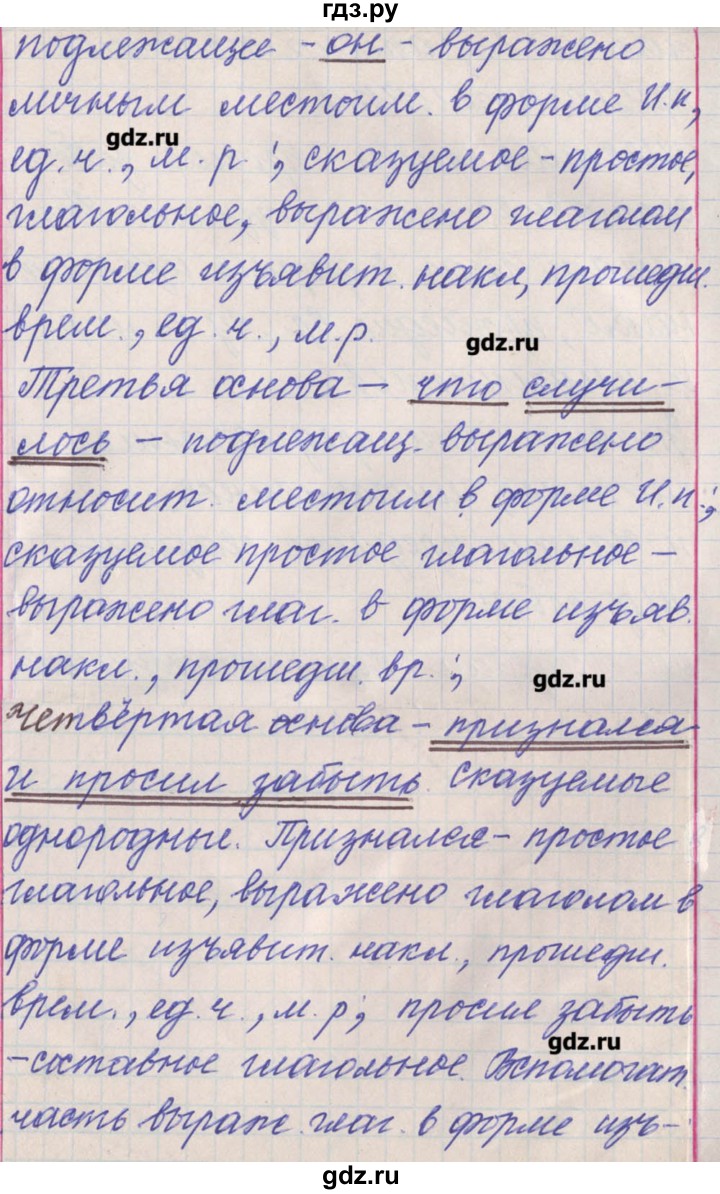 гдз.ру
подлежащее - он - выражено
личным местоим. в форме И.п,
gdz.ru
ед.ч., м.р.; сказуемое - простое,
глагольное, выражено глаголом
в форме изъявит. накл, прошедш.
врем., ед.ч., м.р.
gdz.ru
Третья основа - что случи-
лось - подлежащ. выражено
относит. местоим в форме И.п.;
сказуемое простое глагольное -
выражено глаг. в форме изъяв.
накл., прошедш. вр.;
gdz.ru
четвёртая основа - признался
и просил забыть. Сказуемые
однородные. Признался - простое
глагольное, выражено глаголом в
форме изъявит. накл., прошедш.
врем., ед.ч., м.р; просил забыть
gdz.ru
- составное глагольное. Вспомогат.
часть выраж. глаг. в форме изъ-
gdz.ru